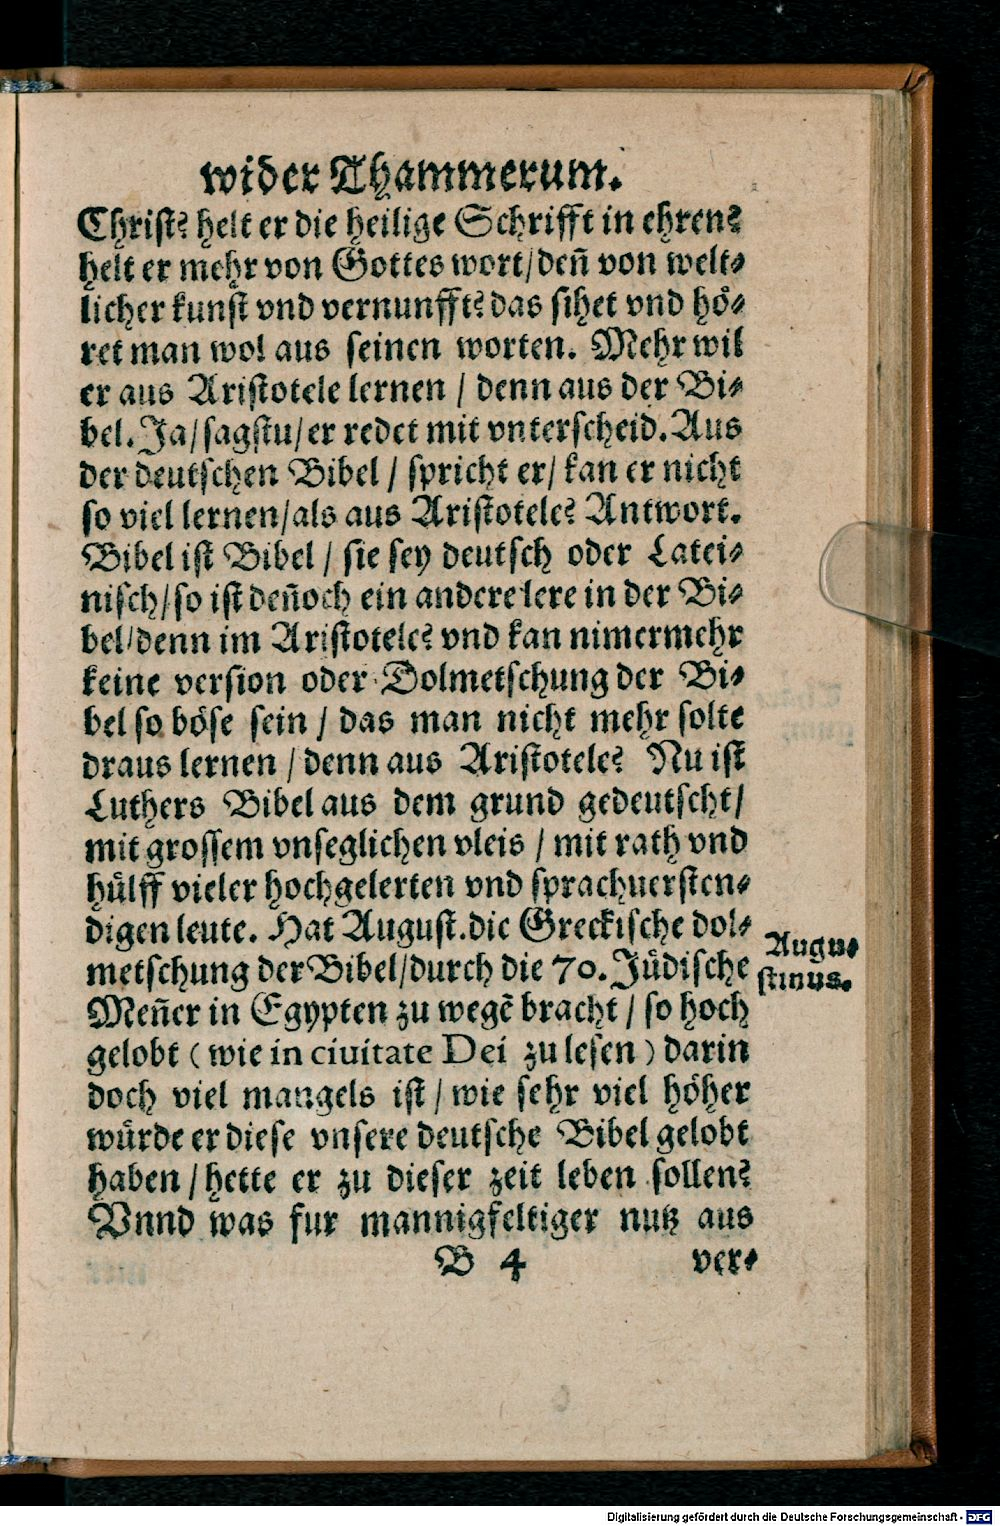 wider Thammerum.
Christ? helt er die heilige Schrifft in ehren?
helt er mehr von Gottes wort/ deñ von welt-
licher kunst vnd vernunfft? das sihet vnd hö-
ret man wol aus seinen worten. Mehr wil
er aus Aristotele lernen / denn aus der Bi-
bel. Ja/ sagstu/ er redet mit vnterscheid. Aus
der deutschen Bibel / spricht er/ kan er nicht
so viel lernen/ als aus Aristotele? Antwort.
Bibel ist Bibel / sie sey deutsch oder Latei-
nisch/ so ist deñoch ein andere lere in der Bi-
bel/ denn im Aristotele? vnd kan nimermehr
keine version oder Dolmetschung der Bi-
bel so böse sein / das man nicht mehr solte
draus lernen / denn aus Aristotele? Nu ist
Luthers Bibel aus dem grund gedeutscht/
mit grossem vnseglichen vleis / mit rath vnd
hülff vieler hochgelerten vnd sprachuersten-
digen leute. Hat August. die Greckische dol-
metschung der Bibel/ durch die 70. Jüdische
Meñer in Egypten zu wegẽ bracht / so hoch
gelobt ( wie in ciuitate Dei zu lesen ) darin
doch viel mangels ist / wie sehr viel höher
würde er diese vnsere deutsche Bibel gelobt
haben / hette er zu dieser zeit leben sollen?
Vnnd was fur mannigfeltiger nutz aus
B 4 ver-
Augu-
stinus.
Digitalisierung gefördert durch die Deutsche Forschungsgemeinschaft - DFG